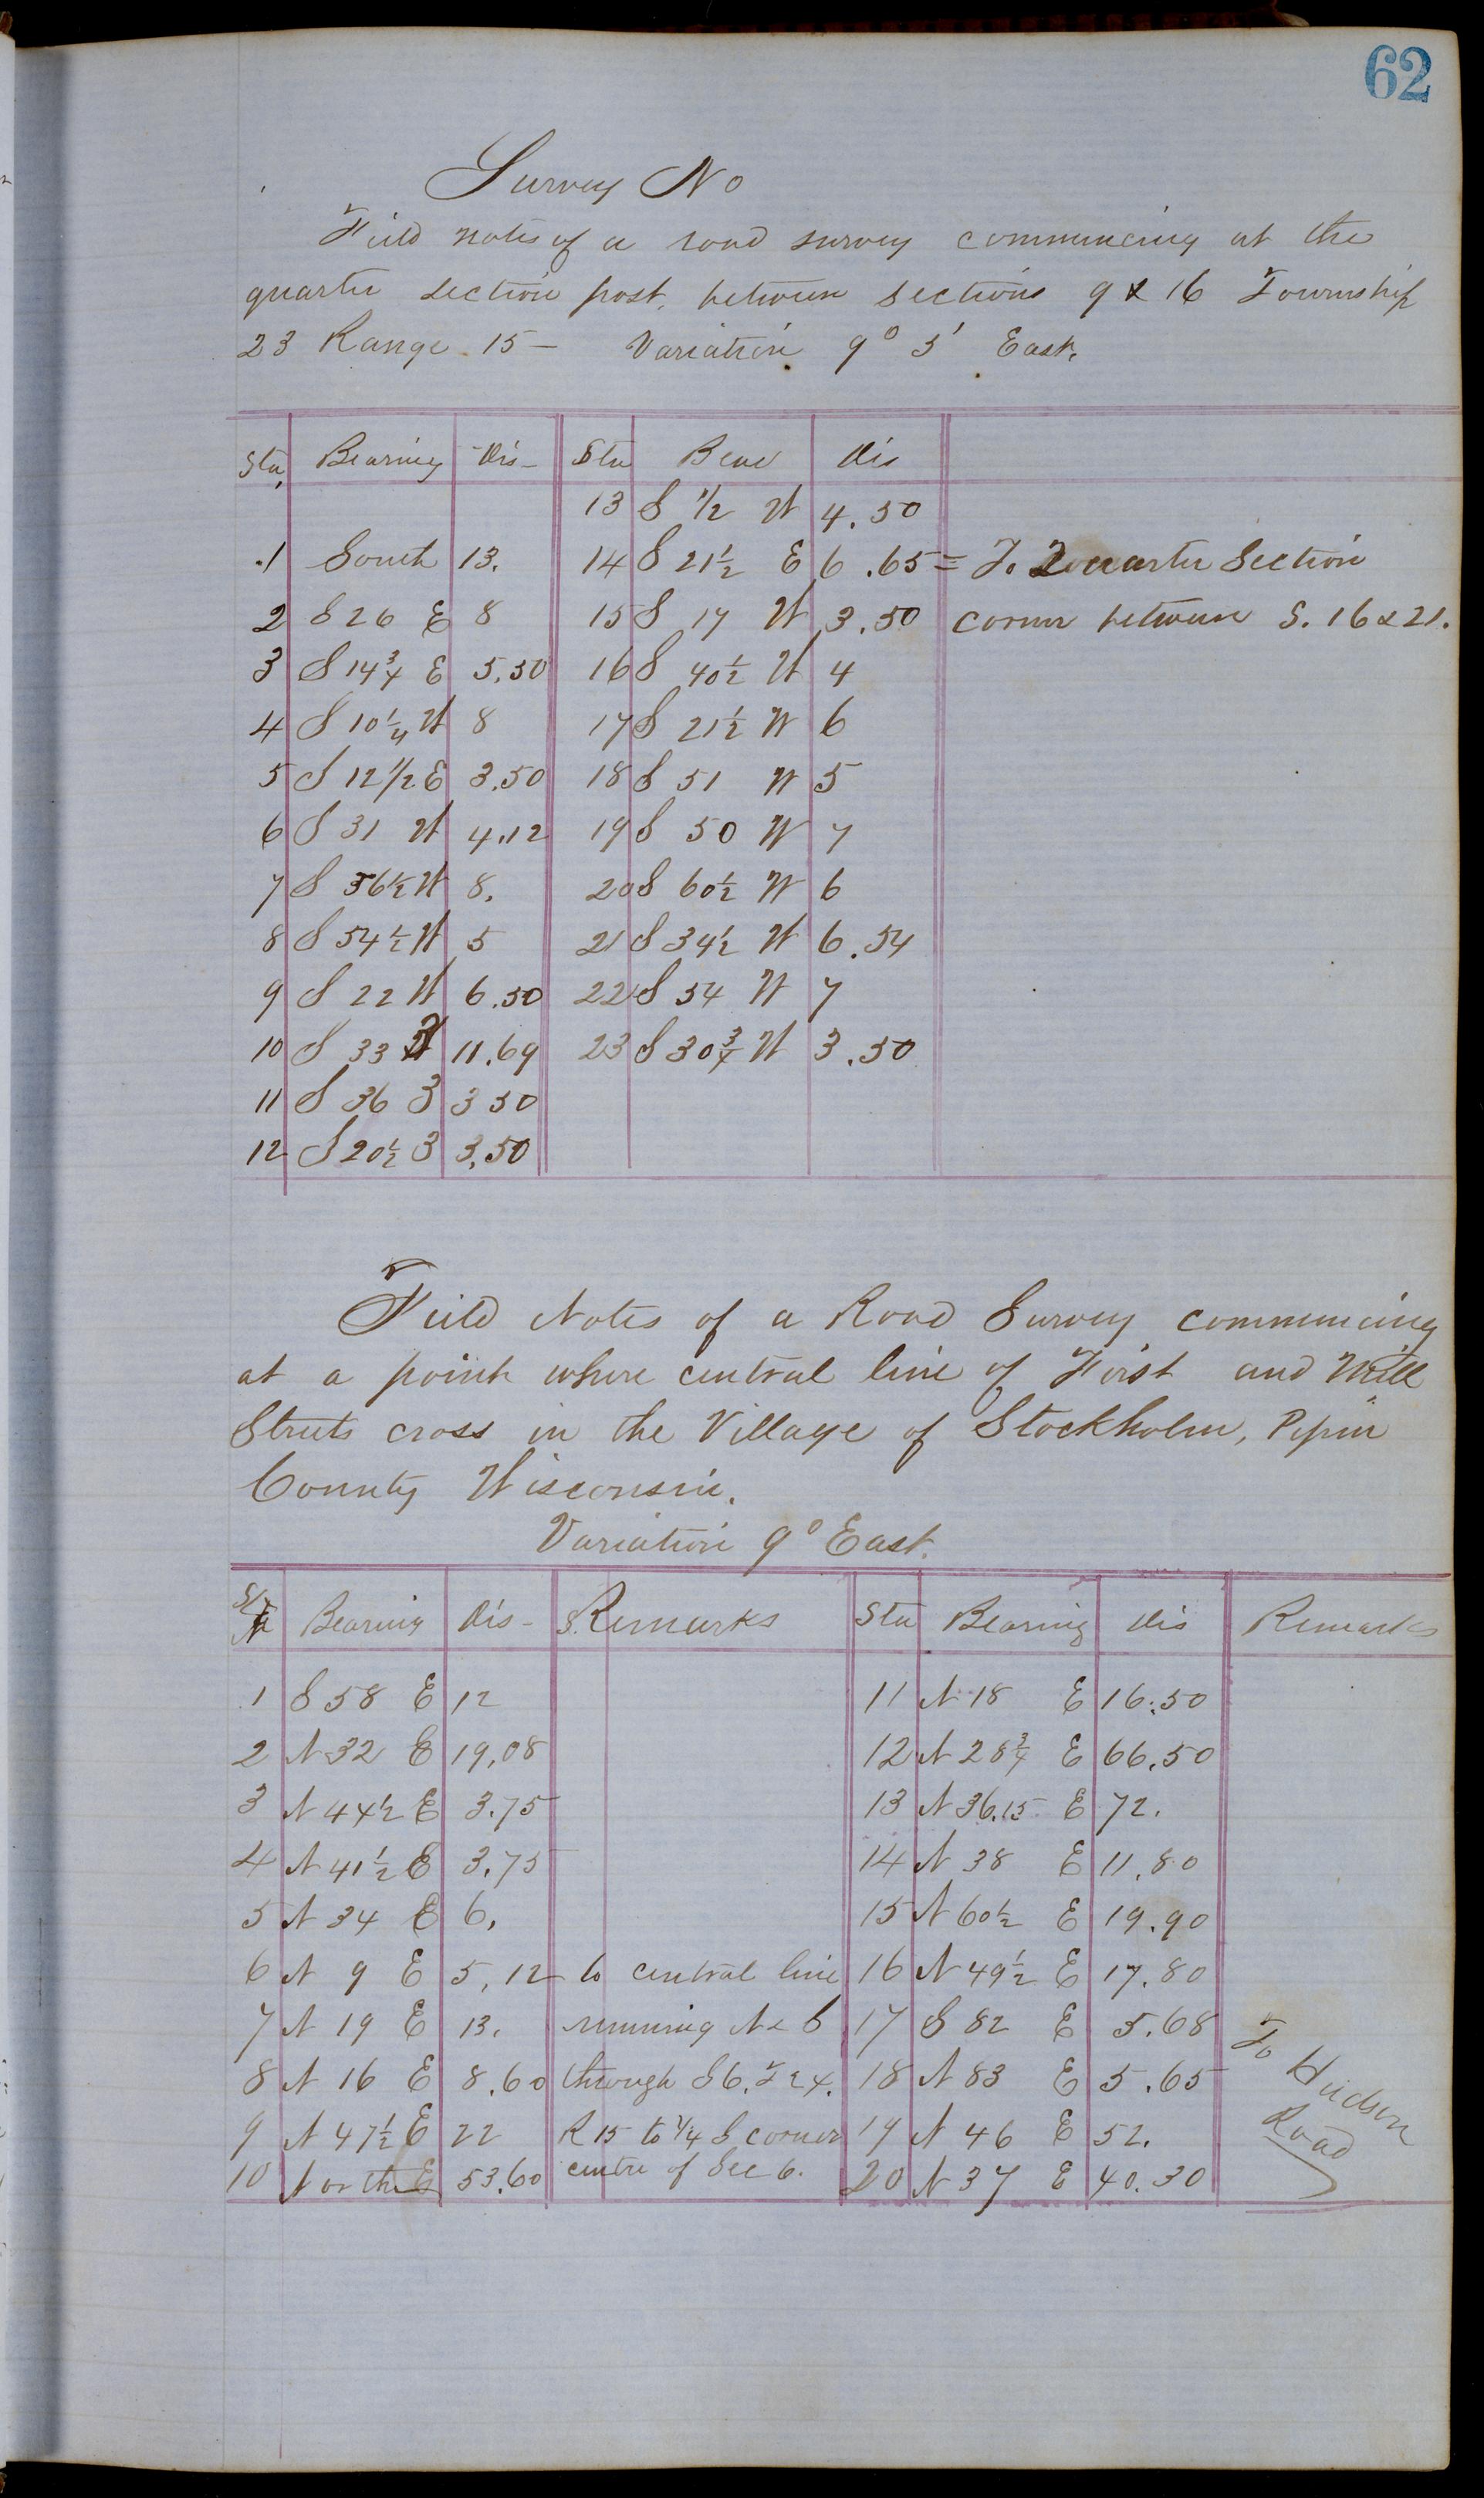 62
Survey No
Field notes of a road survey commencing at the
quarter section post, between sections 9 & 16 Township
23 Range 15 — Variation 9° 5' East.
Sta, Bearing Dis— Sta Bear Dis
13 S 1/2 W 4.50
1 South 13. 14 S 21 1/2 E 6.65 = To Quarter Section
2 S 26 E 8 15 S 17 W 3.50 corner between S. 16 & 21.
3 S 14 3/4 E 5.50 16 S 40 1/2 W 4
4 S 10 1/4 W 8 17 S 21 1/2 W 6
5 S 12 1/2 E 3.50 18 S 51 W 5
6 S 31 W 4.12 19 S 50 W 7
7 S 36 1/2 W 8. 20 S 60 1/2 W 6
8 S 54 1/2 W 5 21 S 34 1/2 W 6.54
9 S 22 W 6.50 22 S 54 W 7
10 S 33 11.69 23 S 30 3/4 W 3.50
11 S 36 3 50
12 S 20 1/2 3.50
Field Notes of a Road Survey commencing
at a point where central line of First and Mill
Streets cross in the Village of Stockholm, Pepin
County Wisconsin.
Variation 9° East.
Sta Bearing Dis— Remarks Sta Bearing Dis Remarks
1 S 58 E 12 11 N 18 E 16.50
2 N 32 E 19.08 12 N 28 3/4 E 66.50
3 N 44 1/2 E 3.75 13 N 36.15 E 72.
4 N 41 1/2 E 3.75 14 N 38 E 11.80
5 N 34 E 6. 15 N 60 1/2 E 19.90
6 N 9 E 5.12 to central line 16 N 49 1/2 E 17.80
7 N 19 E 13. running N & S 17 S 82 E 5.68 To
8 N 16 E 8.60 through S 6. T 24. 18 N 83 E 5.65 Hudson
9 N 47 1/2 E 22 R 15 to 1/4 S corner 19 N 46 E 52. Road
10 North E 53.60 centre of Sec 6. 20 N 37 E 40.30